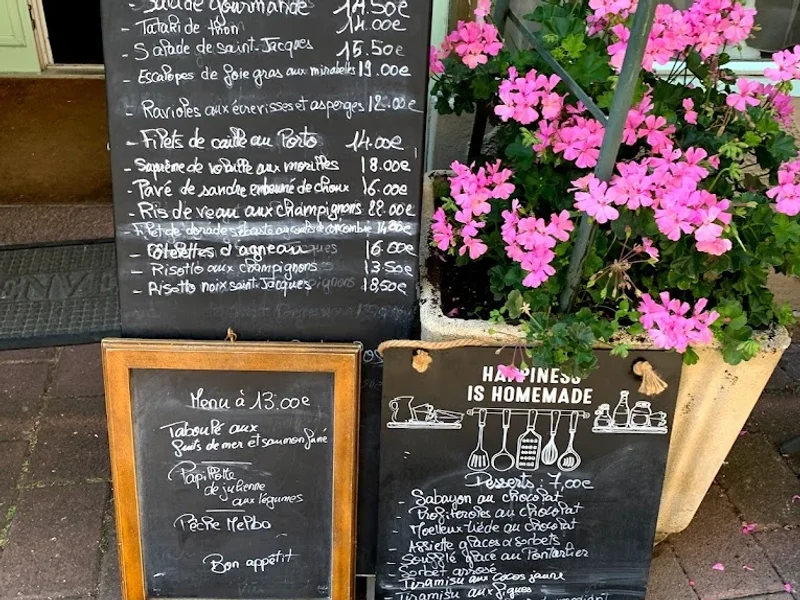 - Salade Gourmande 14.50€
- Tataki de thon 14.00€
- Salade de saint-Jacques 15.50€
- Escalopes de foie gras aux mirabelles 19.00€
- Ravioles aux écrevisses et asperges 12.00€
- Filets de caille au Porto 14.00€
- Suprême de volaille aux morilles 18.00€
- Pavé de sandre de choux 16.00€
- Ris de veau aux champignons 22.00€
Filet de dorade de concombre
- Côtelettes d'agneau 16.00€
- Risotto aux champignons 13.50€
- Risotto noix saint Jacques 18.50€
Menu à 13.00€
Taboulé aux
fruits de mer et saumon fumé
Papillotte
de julienne
aux légumes
Pêche Melba
Bon appétit
HAPPINESS
IS HOMEMADE
Desserts : 7,00€
- Sabayon au chocolat
- Profiteroles au chocolat
- Moelleux tiède au chocolat
- Assiette glaces & sorbets
- Soufflé glacé au Pontarlier
- Sorbet arrosé
- Tiramisu aux cocos jaune
- Tiramisu aux figues